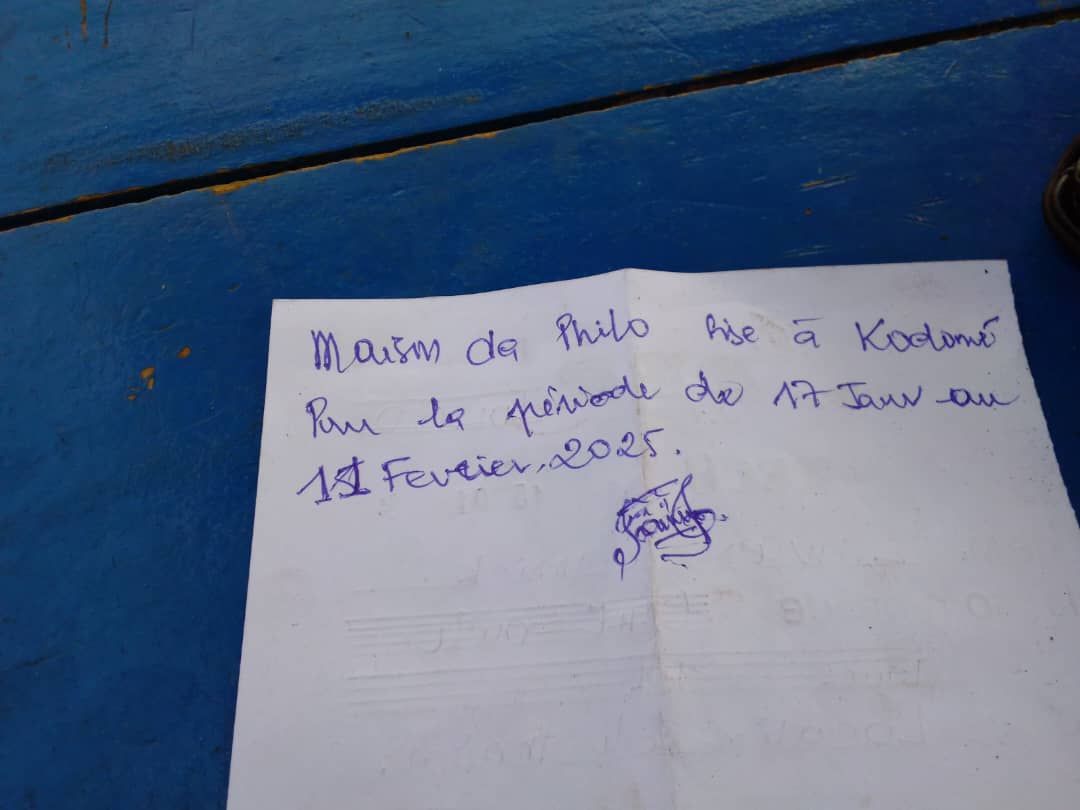 Maison de Philo sise à Kodomé
Pour la période de 17 Janv au
1er Fevrier. 2025.